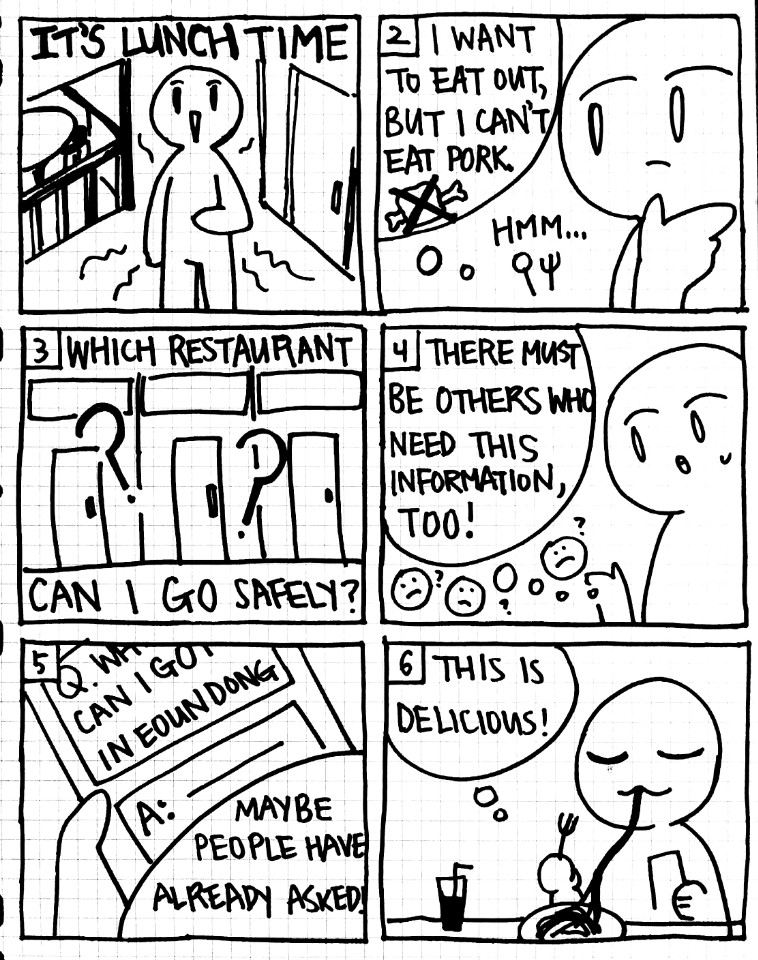 IT'S LUNCH TIME
2
I WANT
TO EAT OUT,
BUT I CAN'T
EAT PORK.
HMM...
3
WHICH RESTAURANT
? ?
CAN I GO SAFELY?
4
THERE MUST
BE OTHERS WHO
NEED THIS
INFORMATION,
TOO!
?
?
?
5
Q. WH
CAN I GO
IN EOUNDONG
A:
MAYBE
PEOPLE HAVE
ALREADY ASKED!
6
THIS IS
DELICIOUS!